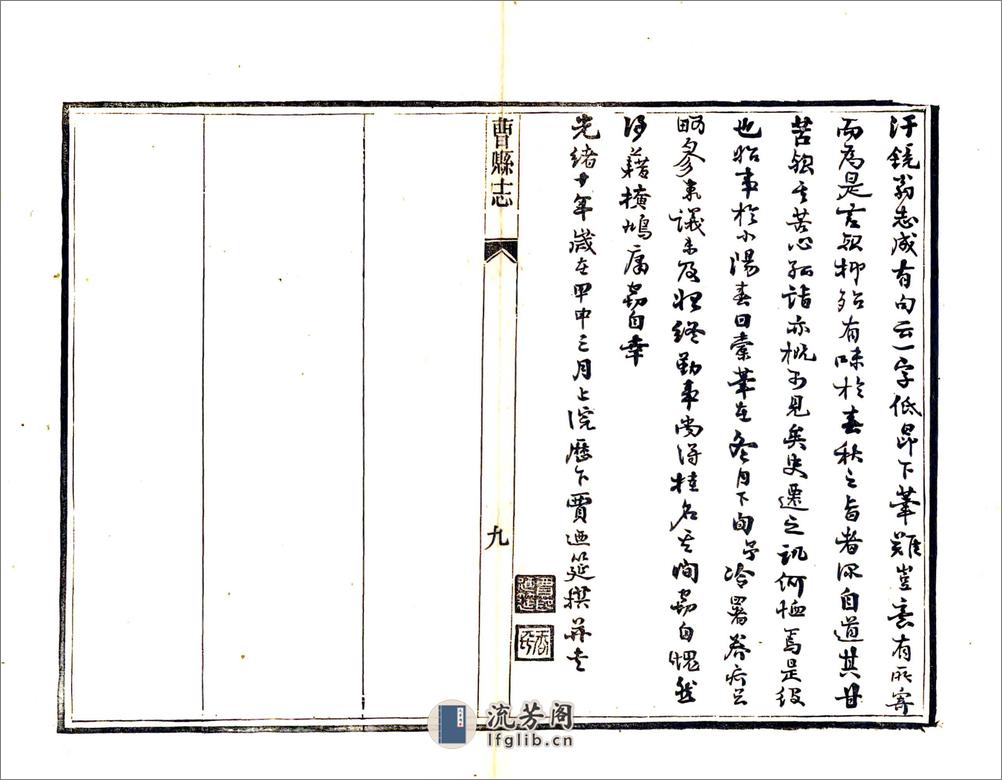 汗鏡翁志成有句云一字低昂下筆難豈靈有所寄
而為是言歟抑殆有味於春秋之旨者深自道其甘
苦歟其苦心孤詣亦概可見矣史遷之譏何恤焉是役
也始事於小陽春日橐筆在冬月下旬予冷署養疴
參末議未及始終勤事尚得挂名其間竊自愧然
得藉 竊自幸
光緒十年歲在甲申三月上浣歷下賈迺筵撰并書
曹縣志
九
流芳阁
lfglib.cn